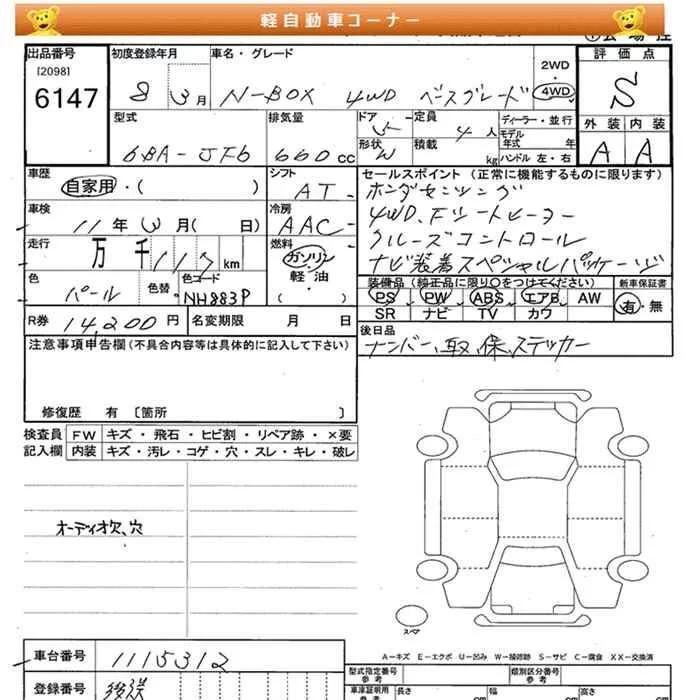 軽自動車コーナー
出品番号 初度登録年月 車名・グレード 評価点
[2098] 2WD
6147 8 3月 N-BOX 4WD ベースグレード 4WD S
型式 排気量 ドア 定員 ディーラー・並行 外装 内装
5 4人 モデル年式 年
6BA-JF6 660cc 形状 W 積載 kg ハンドル 左・右 A A
車歴 シフト セールスポイント (正常に機能するものに限ります)
自家用・( ) AT ホンダセンシング
車検 冷房 4WD、Fシートヒーター
11年3月( 日) AAC クルーズコントロール
走行 燃料 ナビ装着スペシャルパッケージ
万 千 117 km ガソリン・軽油 ( )
色 色替 色コード 装備品 (純正品に限り○をつけてください) 新車保証書
パール NH883P PS PW ABS エアB AW 有・無
SR ナビ TV カワ
R券 14,200円 名変期限 月 日 後日品
注意事項申告欄(不具合内容等は具体的に記入して下さい) ナンバー、取、保、ステッカー
修復歴 有 [箇所 ]
検査員 FW キズ・飛石・ヒビ割・リペア跡・×要
記入欄 内装 キズ・汚レ・コゲ・穴・スレ・キレ・破レ
オーディオ欠、穴
スペア
A－キズ E－エクボ U－凹み W－補修跡 S－サビ C－腐食 XX－交換済
車台番号 1115312
型式指定番号 参考 類別区分番号 参考
登録番号 後送 車庫証明用 参考 長さ cm 幅 cm 高さ cm